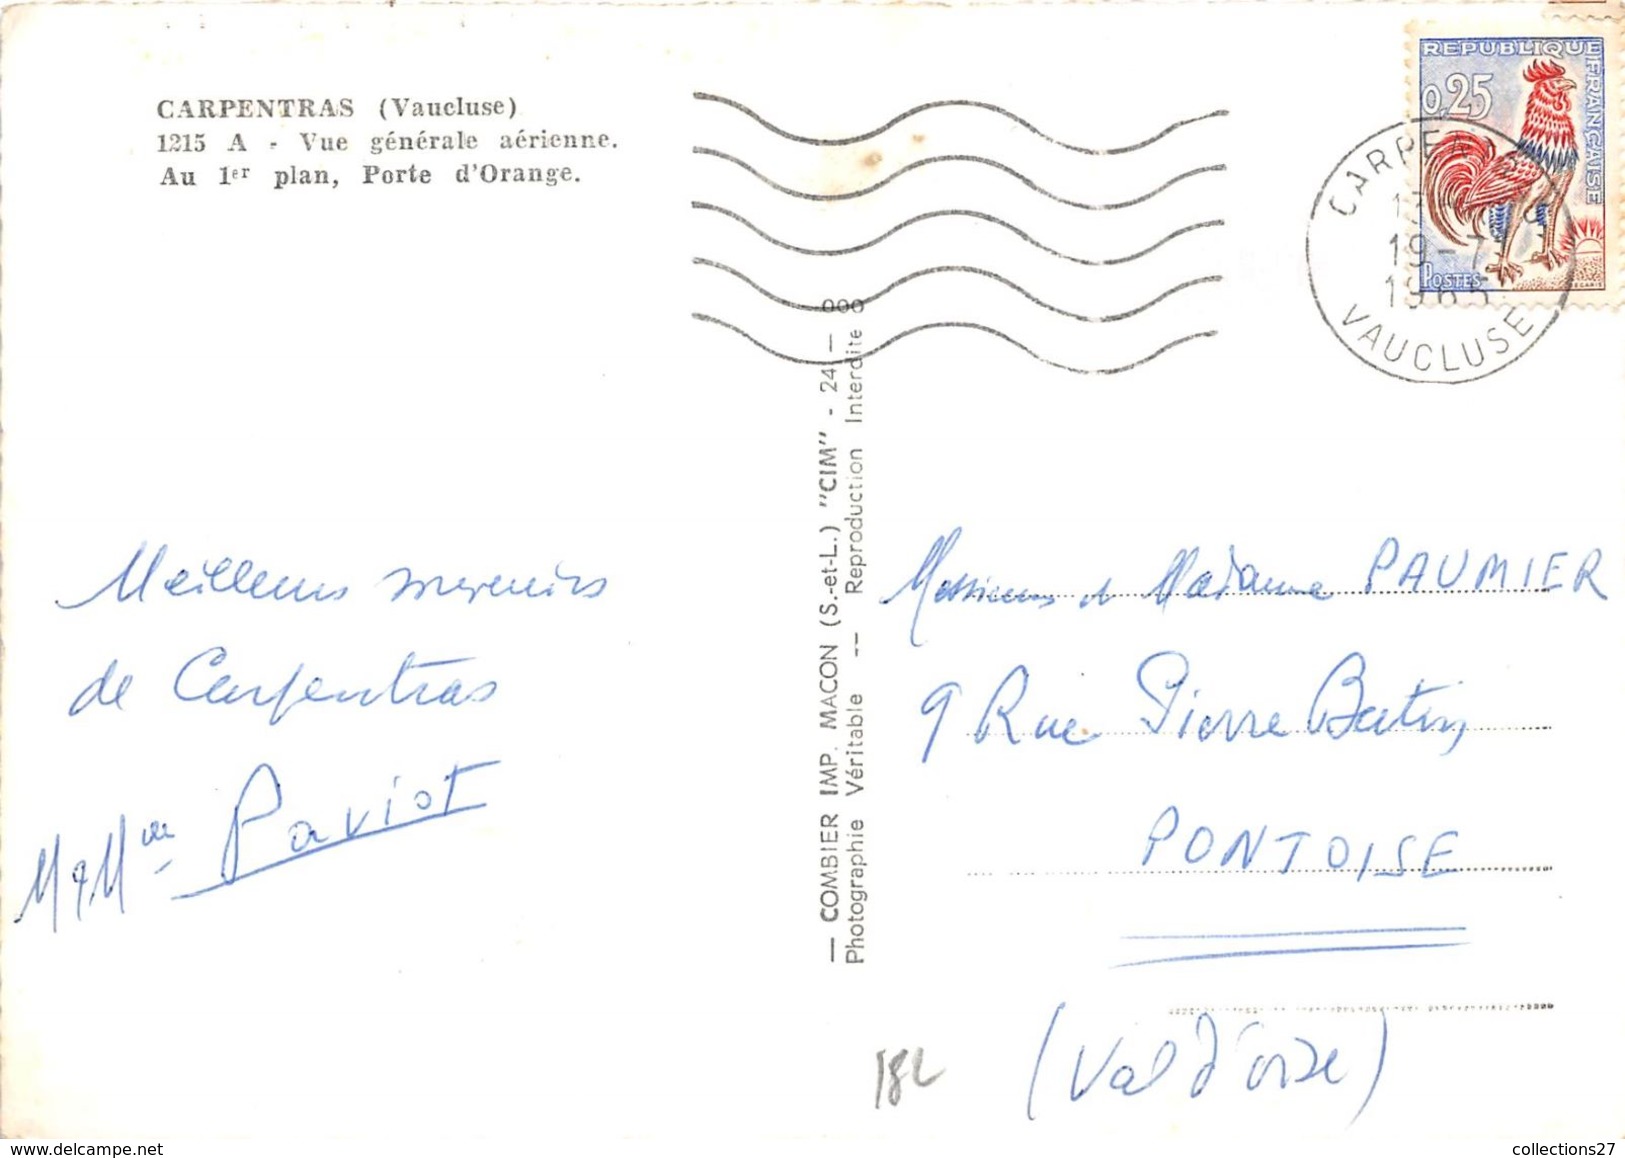 CARPENTRAS (Vaucluse)
1215 A - Vue générale aérienne.
Au 1er plan, Porte d'Orange.
REPUBLIQUE FRANÇAISE
0,25
POSTES
DECARIS
CARPENTRAS
19-7
1965
VAUCLUSE
— COMBIER IMP. MACON (S.-et-L.) "CIM" - 24 — 000
Photographie Véritable -- Reproduction Interdite
Meilleurs souvenirs
de Carpentras
M & Mme Paviot
Messieurs et Madame PAUMIER
9 Rue Pierre Butin
PONTOISE
(Val d'oise)
18L
collections27